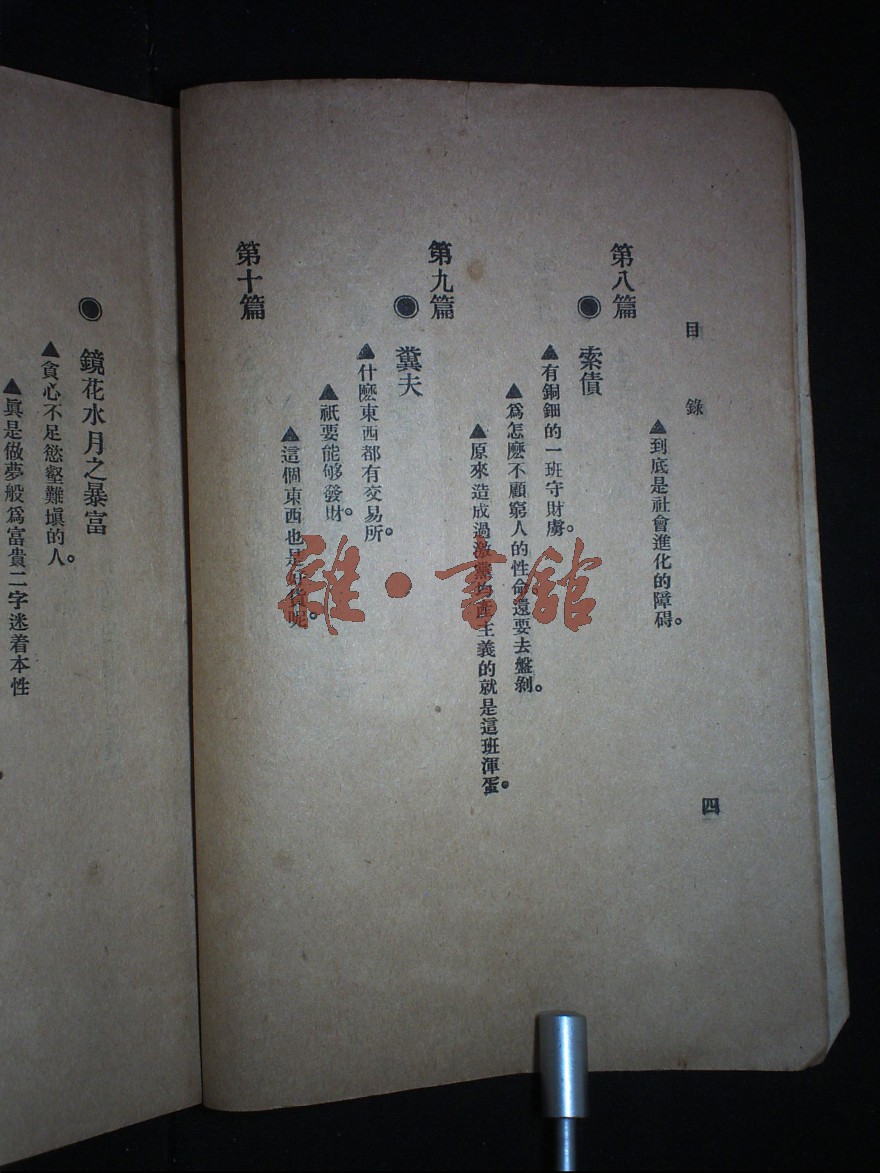 目錄
四
▲到底是社會進化的障碍。
第八篇
●索債
▲有銅鈿的一班守財虜。
▲爲怎麽不顧窮人的性命還要去盤剝。
▲原來造成過激黨均產主義的就是這班渾蛋。
第九篇
●糞夫
▲什麽東西都有交易所。
▲祇要能够發財。
▲這個東西也是好貨呢。
第十篇
●鏡花水月之暴富
▲貪心不足慾壑難塡的人。
▲眞是做夢般爲富貴二字迷着本性
雜·書館